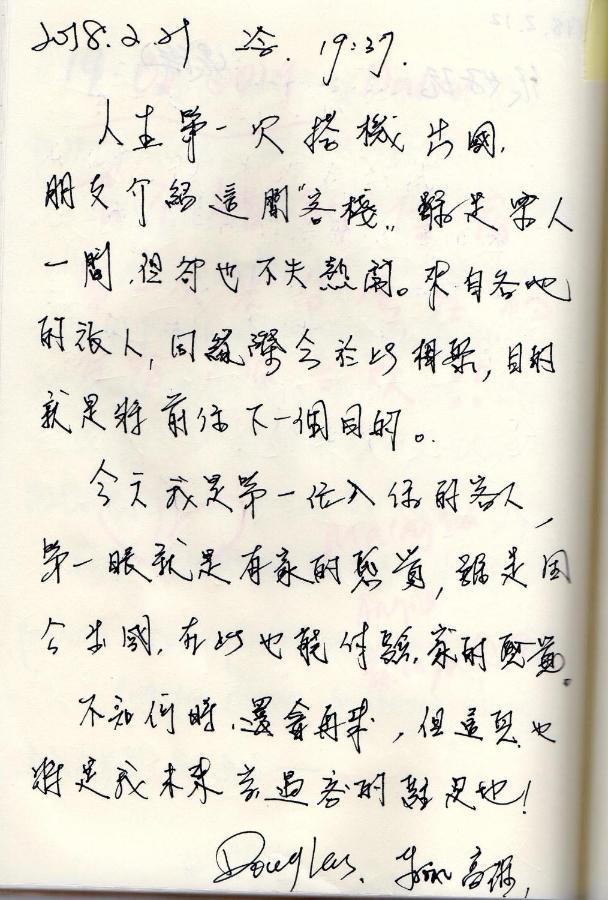 2018.2.21 冷. 19:37.
人生第一次搭機出國,
朋友介紹這間"客棧",雖是單人
一間,但卻也不失熱鬧。來自各地
的旅人,因緣際會於此相聚,目的
就是將前往下一個目的。
今天我是第一位入住的客人,
第一眼就是有家的感覺,雖是因
公出國,在此也能体驗家的感覺。
不知何時,還會再來,但這兒也
將是我未來 過客的駐足地!
Douglas. 高雄,